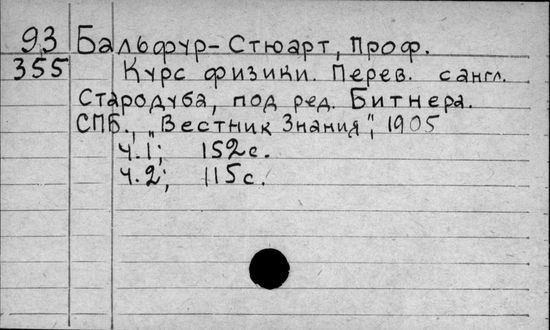 93 Бальфур-Стюарт, Проф.
355 Курс физики. Перев. с англ.
Стародуба, под ред. Битнера.
СПБ., "Вестник Знания", 1905
ч.1; 152с.
ч.2; 115с.